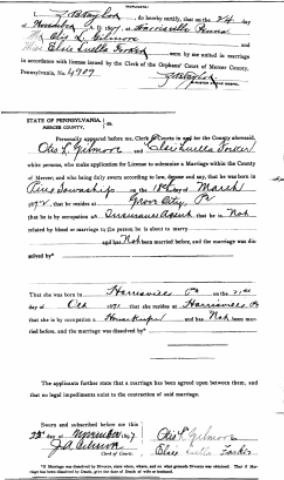 I, Z. B. Taylor, do hereby certify, that on the 24 day
of November A. D. 1897, at Harrisville Penna
Mr. Otis L. Gilmore and
Miss Elsie Luella were by me united in marriage
in accordance with license issued by the Clerk of the Orphans' Court of Mercer County,
Pennsylvania, No. 4909
Z. B. Taylor
STATE OF PENNSYLVANIA,
MERCER COUNTY,
Personally appeared before me, Clerk Courts in and for the County aforesaid,
Otis L. Gilmore and Elsie Luella
persons, who make application for License to solemnize a Marriage within the County
of Mercer; and who being duly sworn according to law, depose and say, that he was born in
Pine Township on the 18th day of March
1872, that he resides at Grove City, Pa
that he is by occupation an Insurance Agent, that he is Not
related by blood or marriage to the person he is about to marry
and has Not been married before, and the marriage was dis-
solved by*
That she was born in Harrisville Pa on the 21st
day of Oct 1871 that she resides at Harrisville Pa
that she is by occupation a Housekeeper and has Not been mar-
ried before, and the marriage was dissolved by*
The applicants further state that a marriage has been agreed upon between them, and
that no legal impediments exist to the contraction of said marriage.
Sworn and subscribed before me this
day of November 1897
J. A.
Clerk of Courts.
Otis L. Gilmore
Elsie
*If Marriage was dissolved by Divorce, state when, where, and on what grounds Divorce was obtained. That if Mar-
riage has been dissolved by Death, give the date of Death of wife or husband.